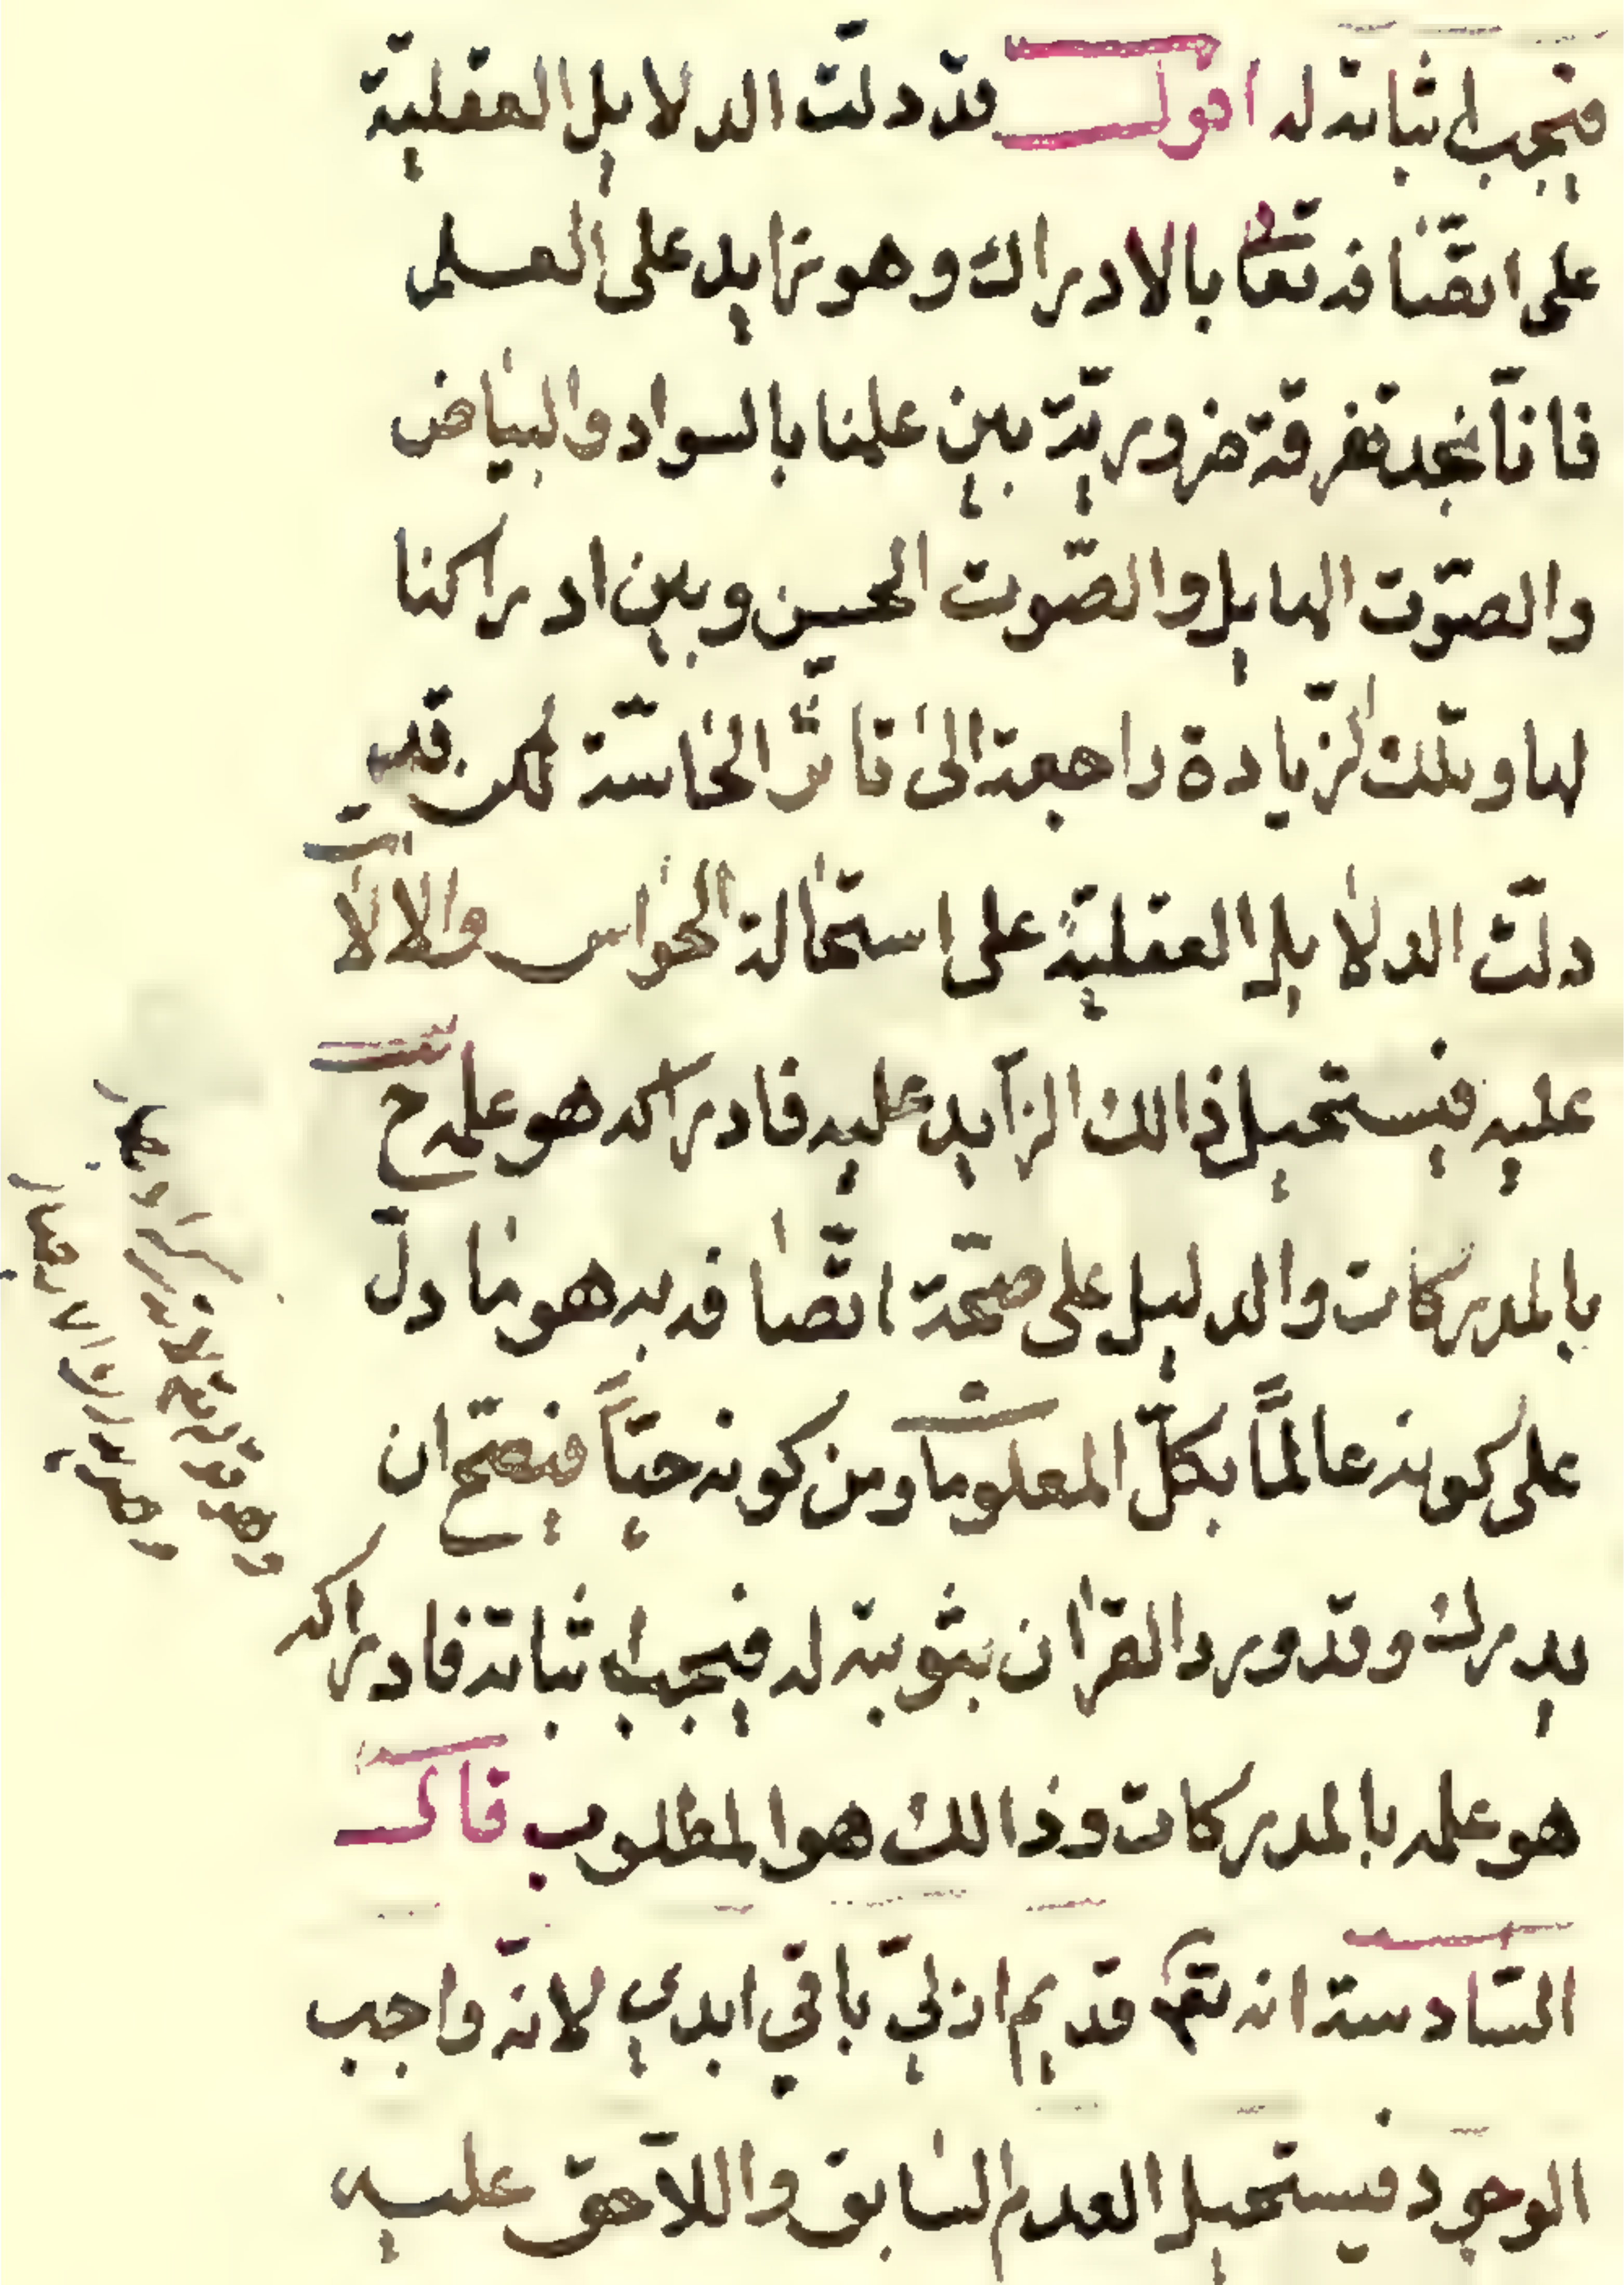 فيجب اثباته له اقول قد دلّت الدلايل العقليّة
على اتّصافه تعالى بالادراك وهو زايد على العلم
فانّا نجد تفرقة ضروريّة بين علمنا بالسواد والبياض
والصّوت الهايل والصّوت الحسن وبين ادراكنا
لها وتلك الزّيادة راجعة الى تاثّر الحاسّة لكن قد
دلّت الدلايل العقليّة على استحالة الحواس والالات
عليه فيستحيل ذالك الزّايد عليه فادراكه هو علمه ح
بالمدركات والدليل على صحّة اتّصافه به هو ما دلّ
على كونه عالمًا بكلّ المعلومات ومن كونه حيّاً فيصحّ ان
يدرك وقد ورد القران بثبوته له فيجب اثباته فادراكه
هو علمه بالمدركات وذالك هو المطلوب قال
السّادسة انه تعم قديم ازليّ باقي ابدي لانّه واجب
الوجود فيستحيل العدم السّابق واللاّحق عليه
وهو قوله تع لا تدركه الابصار
وهو يدرك الابصار